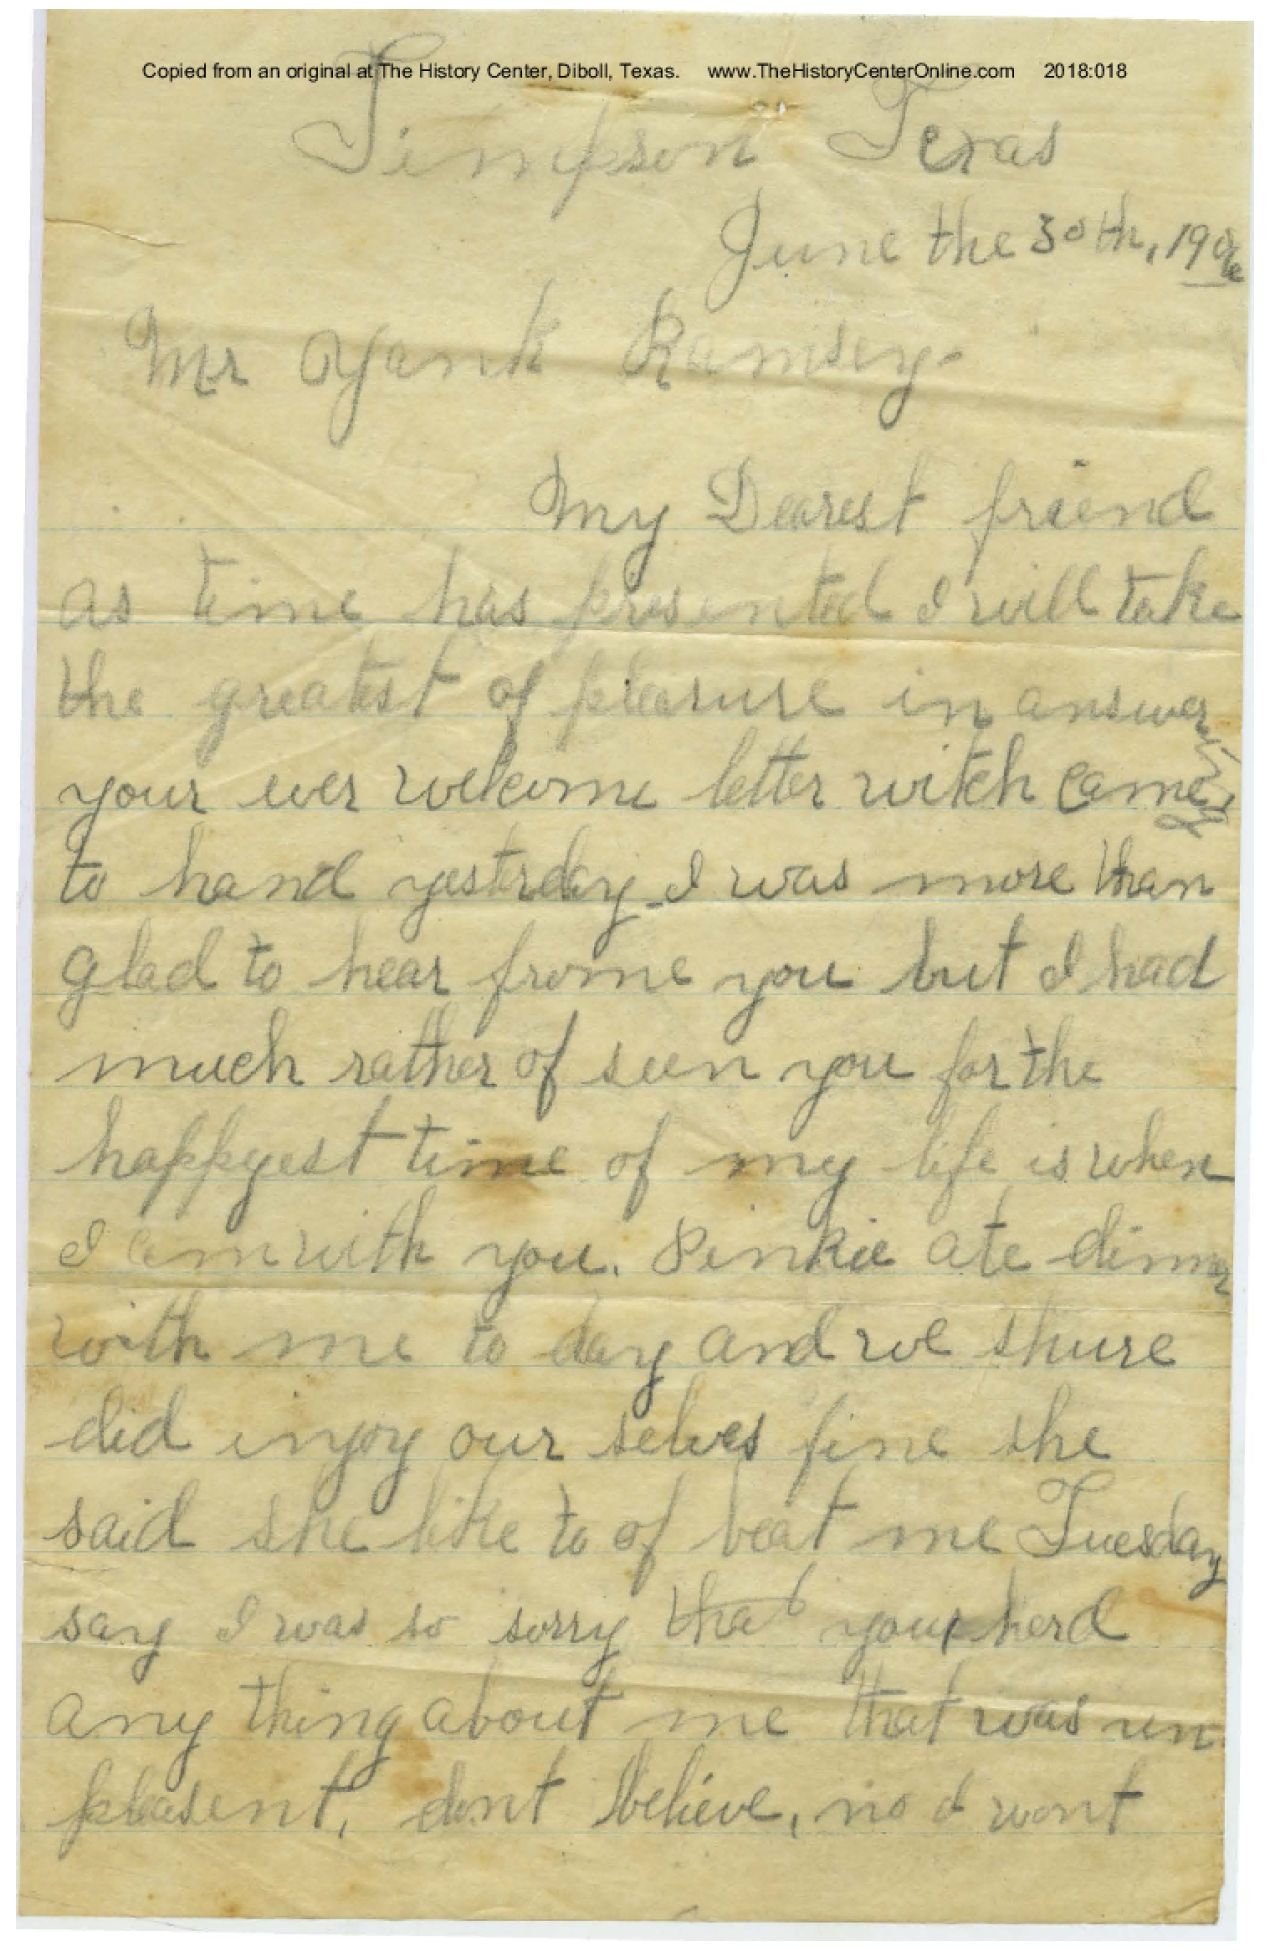 Copied from an original at The History Center, Diboll, Texas. www.TheHistoryCenterOnline.com 2018:018
Timpson Texas
June the 30th, 190
Mr Yank Ramsey-
My Dearest friend
as time has presented I will take
the greatest of pleasure in answering
your ever welcome letter witch came
to hand yesterday I was more than
glad to hear frome you but I had
much rather of seen you for the
happyest time of my life is when
I am with you. Pinkie ate dinner
with me to day and we shure
did injoy our selves fine she
said she like to of beat me Tuesday
say I was so sorry that you herd
any thing about me that was un
pleasent, dont believe, no I wont